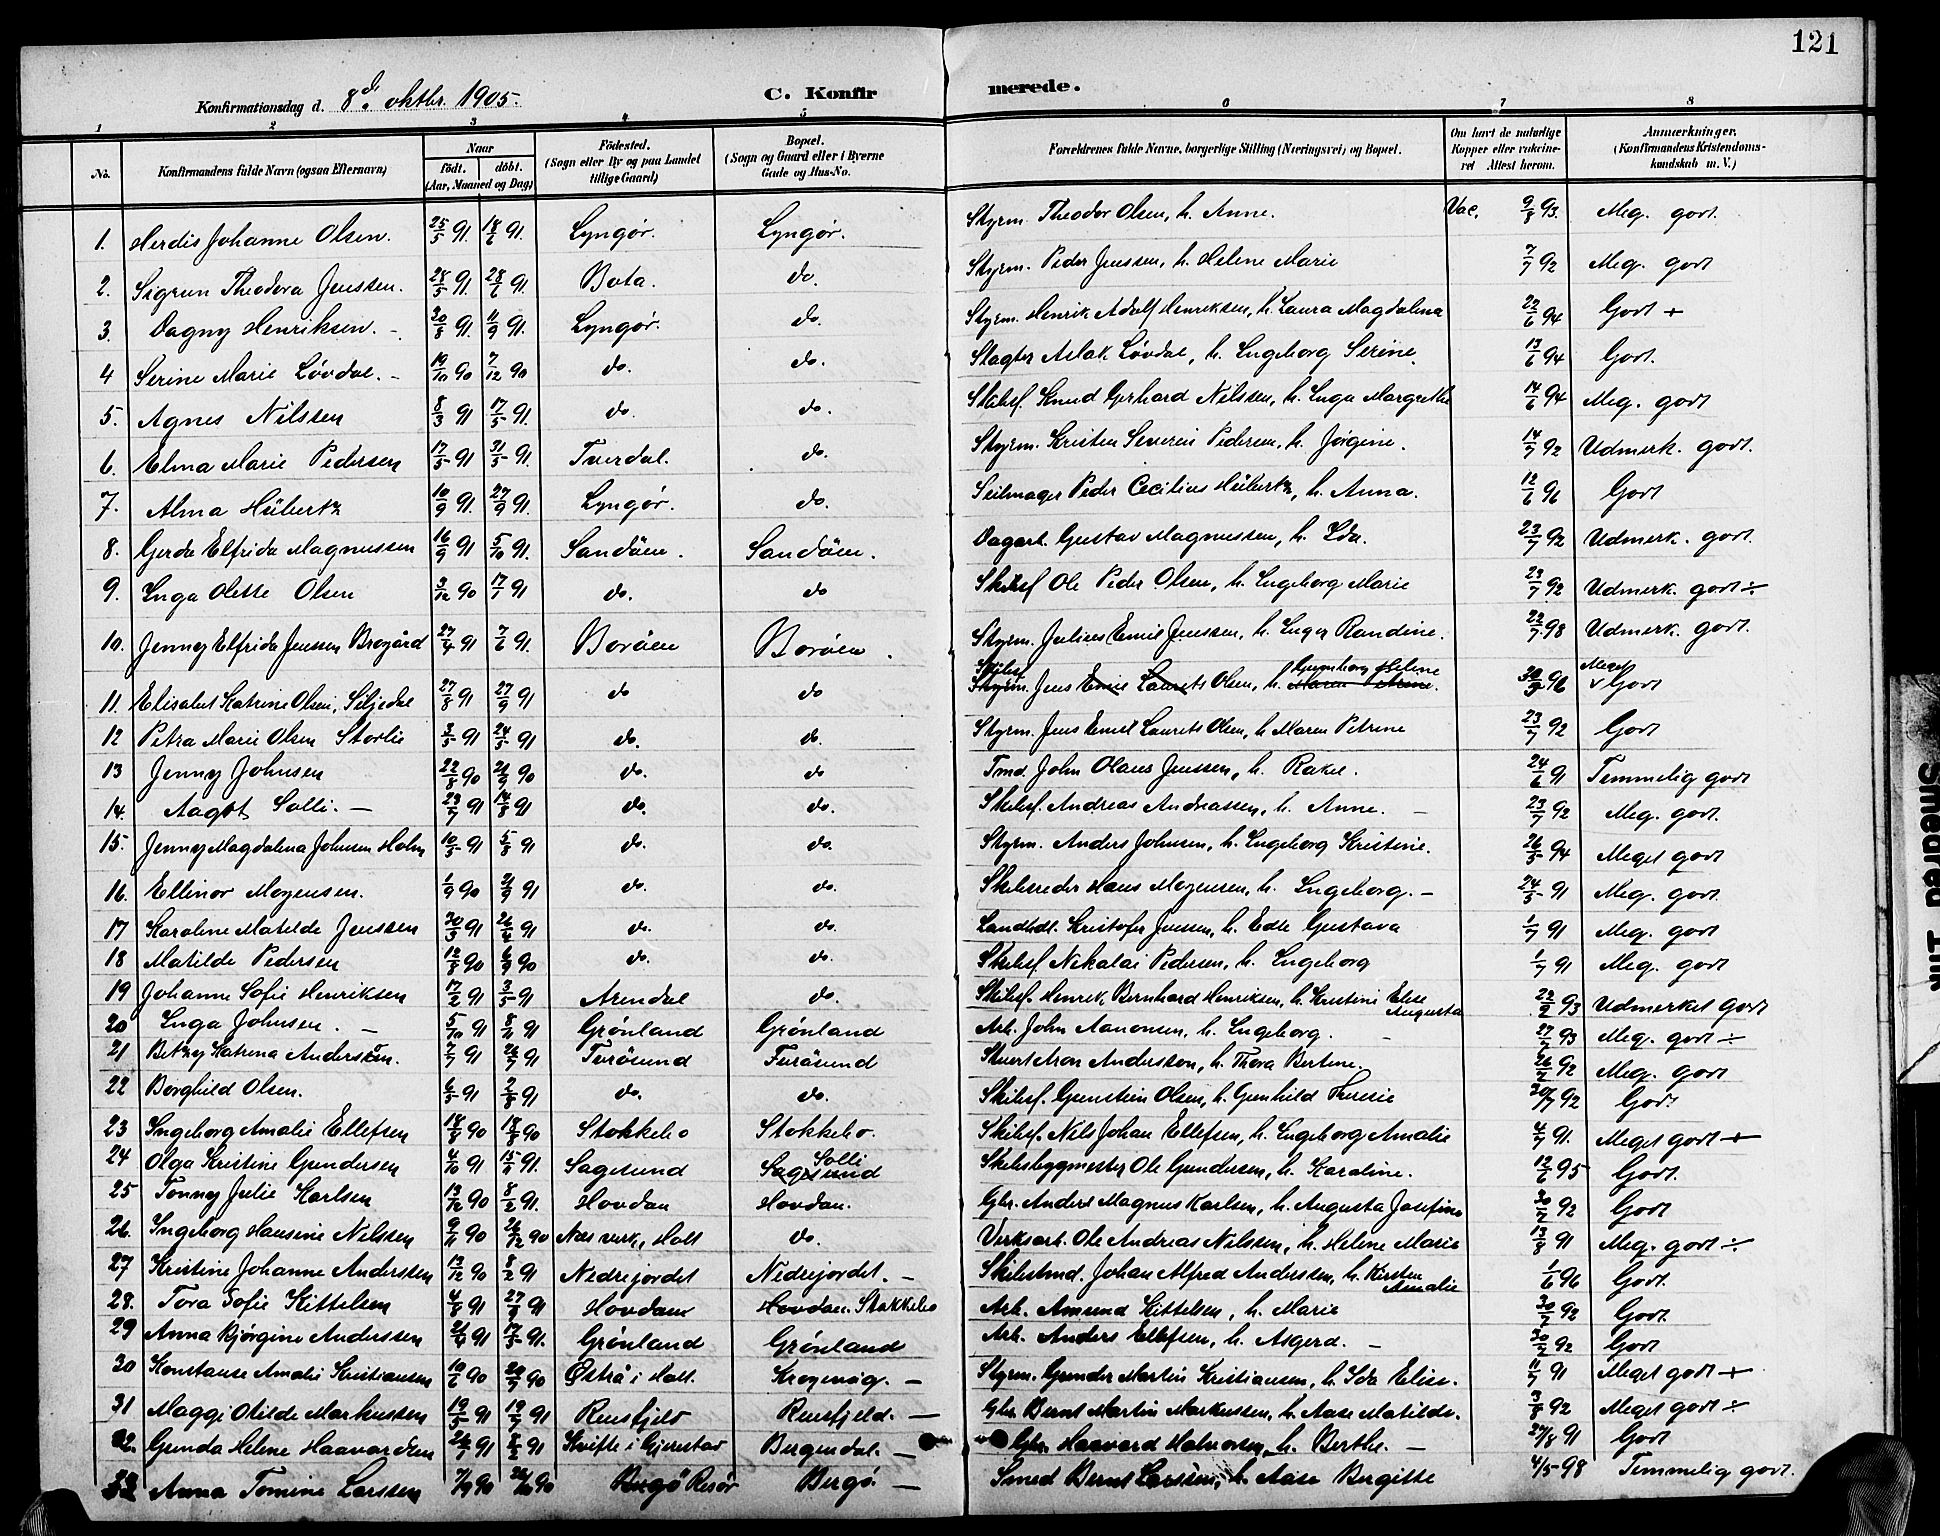 121
Konfirmationsdag d. 8de oktbr. 1905. C. Konfirmerede.
1 2 3 4 5 6 7 8
No. Konfirmandens fulde Navn (ogsaa Efternavn) Naar født. døbt. (Aar, Maaned og Dag) Fødested. (Sogn eller By og paa Landet tillige Gaard) Bopæl. (Sogn og Gaard eller i Byerne Gade og Hus-No. Forældrenes fulde Navne, borgerlige Stilling (Næringsvei) og Bopæl. Om havt de naturlige Kopper eller vakcineret Attest herom. Anmærkninger. (Konfirmandens Kristendomskundskab m. V.)
1. Herdis Johanne Olsen. 25/5 91. 18/6 91. Lyngør. Lyngør. Styrm. Theodor Olsen, h. Anne. Vac. 9/8 93. Meg. godt.
2. Sigrun Theodora Jenssen. 28/5 91. 28/6 91. Bota. do. Styrm. Peder Jenssen, h. Helene Marie 7/7 92 Meg. godt
3. Dagny Henriksen. - 20/8 91. 11/9 91. Lyngør. do. Styrm. Henrik Adolf Henriksen, h. Laura Magdalena 22/6 94 Godt +
4 Serine Marie Løvdal. - 19/10 90 7/12 90 do. do. Slagter Aslak Løvdal, h. Ingeborg Serine. 13/6 94 Godt.
5. Agnes Nilssen 8/3 91 17/5 91. do. do. Skibsf. Knud Gerhard Nilssen, h. Inga Margrethe 14/6 94 Meg. godt
6. Elma Marie Pedersen 17/5 91 31/5 91. Tverdal. do. Styrm. Kristen Severin Pedersen, h. Jørgine. 14/7 92 Udmerk. godt.
7. Alma Hübertz 10/9 91 27/9 91. Lyngør. do. Seilmager Peder Cecilius Hübertz, h. Anna. 12/6 96 Godt
8. Gerda Elfrida Magnussen 16/9 91 5/10 91. Sandøen. Sandøen. Dagarb. Gustav Magnussen, h. Ida. 23/7 92 Udmerk. godt.
9. Inga Olette Olsen 3/12 90 17/7 91 do. do Skibsf Ole Peder Olsen, h. Ingeborg Marie 23/7 92 Udmerk. godt ÷
10. Jenny Elfrida Jenssen Brogård 27/4 91 7/6 91. Borøen Borøen. Styrm. Julius Emil Jenssen, h. Inger Randine. 22/7 98 Udmerk. godt.
11. Elisabet Katrine Olsen, Siljedal 27/8 91 27/9 91 do do Skibsf Styrm. Jens Emil Laurets Olsen, h. Gunnborg Helene Maren Petrine. 96 Meget Godt
12 Petra Marie Olsen Storlie 3/5 91 24/5 91 do. do. Styrm. Jens Emil Laurets Olsen, h Maren Petrine 23/7 92 Godt
13 Jenny Johnsen 22/8 90 21/9 90 do. do Tmd. John Olaus Jenssen, h. Rakel. 24/6 91 Temmelig godt
14. Aagot Solli. - 23/7 91 14/8 91 do. do. Skibsf. Andreas Andreassen, h. Anne. - 23/7 92 Meg. godt.
15. Jenny Magdalena Johnsen Holm 10/5 91 5/8 91 do. do. Styrm. Anders Johnsen, h. Ingeborg Kristine. 26/5 94 Meget godt
16. Ellinor Mogensen. 1/9 90 21/9 91 do. do. Skibsreder Hans Mogensen, h. Ingeborg. - 24/5 91 Meg. godt.
17 Karoline Matilde Jenssen 30/3 91 26/4 91 do. do. Landhdl. Kristofer Jenssen, h. Edle Gustava 1/7 91 Meg. godt
18 Matilde Pedersen 12/8 90 6/9 90 do. do. Skibsf Nikolai Pedersen, h. Ingeborg 1/7 91 Meg. godt
19 Johanne Sofie Henriksen 17/2 91 3/5 91 Arendal do. Skibsf. Henrik Bernhard Henriksen, h. Kristine Elise Augusta 22/2 93 Udmerket godt
20 Inga Johnsen. - 5/10 91 8/11 91 Grönland Grönland Arb. John Aanonsen, h. Ingeborg. - 27/7 93 Meg. godt ÷
21 Betzy Katrena Anderssen. 7/7 91 26/7 91 Furøsund Furøsund Stuert Aron Andersson, h. Thora Bertine. 26/7 92 Meg. godt
22 Borghild Olsen. 6/5 91 2/8 91 do. do. Skibsf. Gunstein Olsen, h. Gunhild Theresie 30/7 92 Godt
23 Ingeborg Amalie Ellefsen 18/8 90 18/8 90 Stokkebo Stokkebo. Skibsf. Nils Johan Ellefsen, h. Ingeborg Amalie 4/7 91. Meget godt +
24 Olga Kristine Gundersen 4/10 91 15/11 91. Sagesund Sagesund Solli Skibsbygmester Ole Gundersen, h. Karoline. 12/6 95 Godt.
25 Tonny Julie Karlsen 13/12 90 8/2 91. Hovdan Hovdan. Gbr. Anders Magnus Karlsen, h. Augusta Josefine 30/7 92 Godt
26. Ingeborg Hansine Nilssen 9/11 90 26/12 90 Næs verk, Holt do. Verksarb. Ole Andreas Nilssen, h. Helene Marie 13/8 91 Meg. godt ÷
27 Kristine Johanne Anderssen 13/12 90 8/2 91 Nedrejordet Nedrejordet. - Skibstmd. Johan Alfred Anderssen, h. Kirsten Amalie 1/6 96 Godt.
28. Tora Sofie Kittelsen 4/8 91 27/9 91 Hovdan Hovdan. Stokkebo Arb. Amund Kittelsen, h. Marie 30/7 92 Godt
29 Anna Bjørgine Anderssen 26/4 91 17/5 91. Grönland Grönland Arb. Anders Ellefsen, h. Asgerd. - 30/7 92 Godt
30 Konstanse Amalie Kristiansen 10/6 90 20/7 90 Østrå i Holt. Krogevåg. - Styrm. Gunder Martin Kristiansen, h. Ida Elise. 11/7 91 Meget godt +
31 Maggi Otilde Markussen 19/5 91 19/7 91 Reusfjeld Reusfjeld. - Gbr. Bernt Martin Markussen, h. Aase Matilde. 3/8 92 Meget godt ÷
32. Gunda Helene Haavardsen 91 91 Kvifte i Gjerstad Bergendal. - Gbr. Haavard Halvorsen, h. Berthe. - 27/8 91 Godt
33 Anna Tomine Larssen 7/9 90 90 Bergø Risør Bergø. - Smed Bernt Larssen, h. Aase Bergitte 4/5 98 Temmelig godt.
Smedred TIR